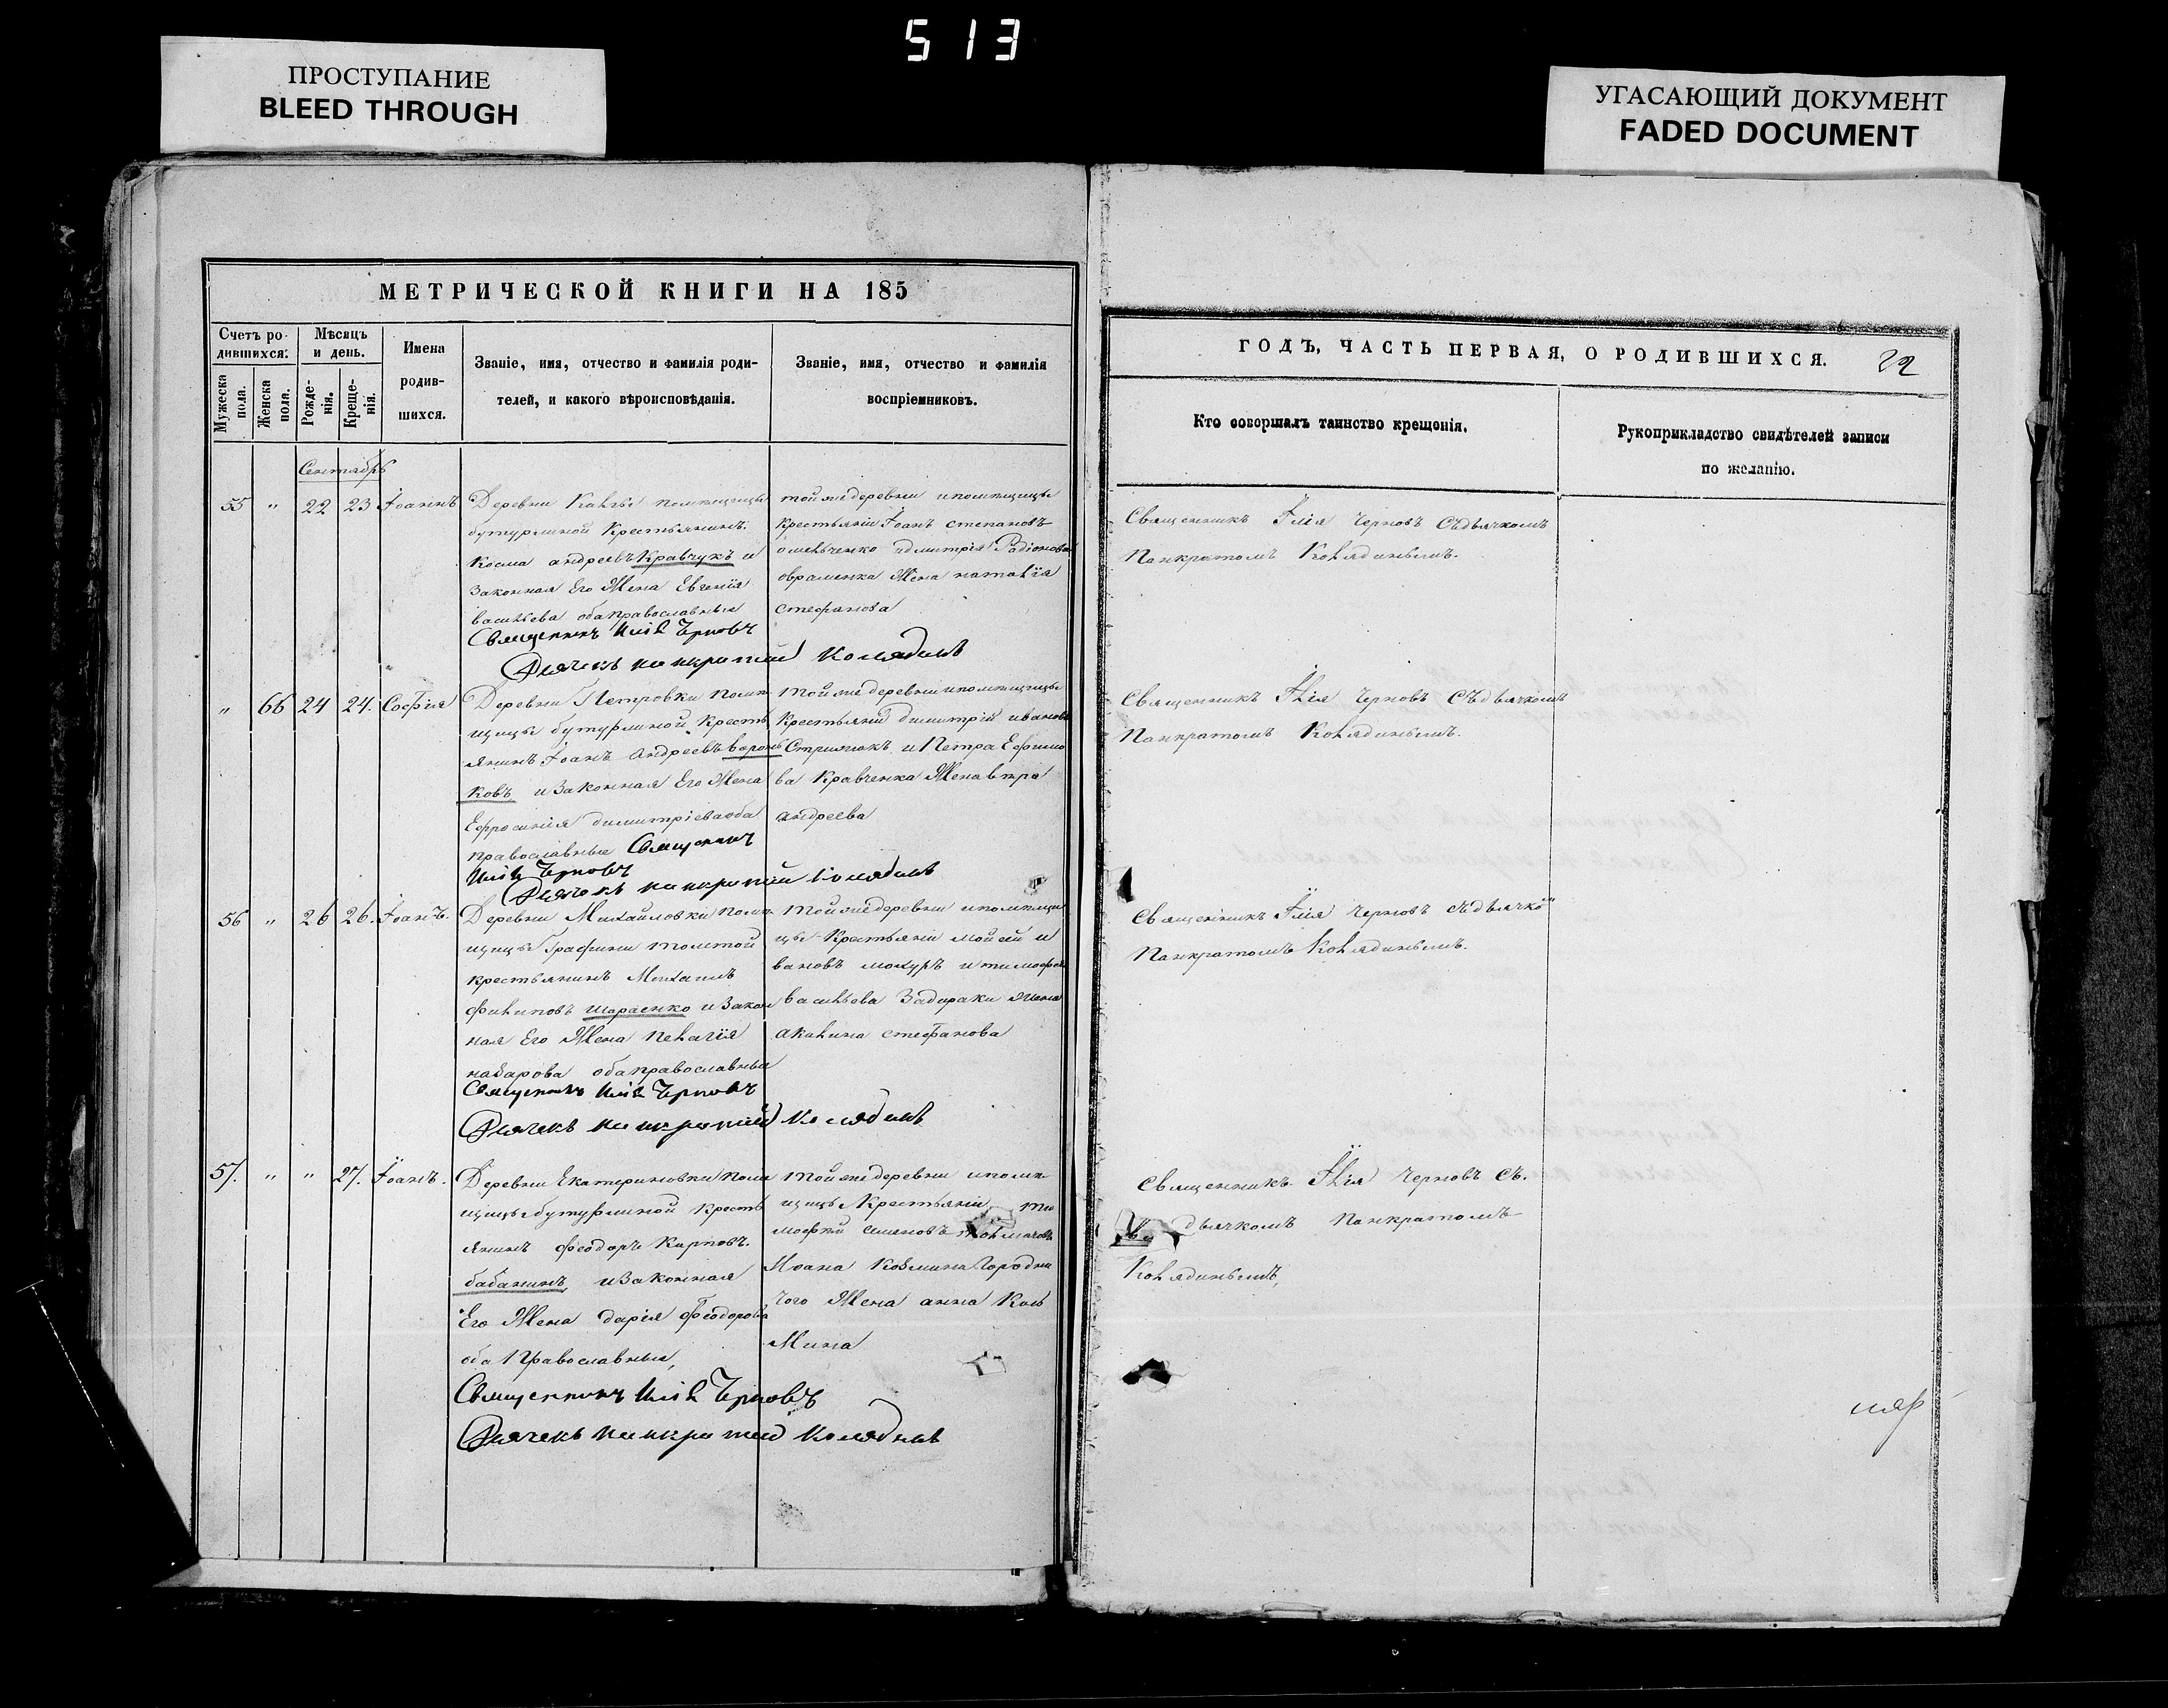 513
ПРОСТУПАНИЕ
BLEED THROUGH
УГАСАЮЩИЙ ДОКУМЕНТ
FADED DOCUMENT
МЕТРИЧЕСКОЙ КНИГИ НА 185
Счетъ ро-
дившихся.
Мѣсяцъ
и день.
Мужеска
пола.
Женска
пола.
Рожде-
нія.
Креще-
нія.
Имена
родив-
шихся.
Званіе, имя, отчество и фамилія роди-
телей, и какого вѣроисповѣданія.
Званіе, имя, отчество и фамилія
воспріемниковъ.
Сентябрь
55 " 22 23 Іоаннъ
Деревни помѣщицы
бутурлиной Крестьянинъ
Косма андреевъ Кравчукъ и
Законная Его Жена Евгенія
васильева оба православные
Священникъ Илія Черновъ
Дьячекъ панкратій Колядинъ
тойже деревни и помѣщицы
Крестьяни Іоанъ степановъ
омельченко идмитрія Радіонова
овраменка Жена наталія
стефанова
" 66 24 24. Софія
Деревни Петровки помѣ
щицы бутурлиной Кресть
янинъ Іоанъ Андреевъ ворон
ковъ и Законная Его Жена
Ефросинія димитріева оба
православные Священникъ
Илія Черновъ
Дьячекъ панкратій Колядинъ
тойже деревни ипомѣщицы
Крестьяни димитрій ивановъ
Стрижакъ и Петра Ефимо
ва Кравченка Жена
андреева
56 " 26 26. Іоанъ.
Деревни Михайловки помѣ
щицы Графини толстой
крестьянинъ Михаилъ
филиповъ шараенко и Закон
ная Его Жена пелагія
назарова оба православные
Священникъ Илія Черновъ
Дьячекъ панкратій Колядинъ
тойже деревни ипомѣщи
цы Крестьяни мойсей и
вановъ и тимофея
васильева Задираки жена
акалина стефанова
57. " " 27. Іоанъ.
Деревни Екатериновки помѣ
щицы бутурлиной Кресть
янинъ феодоръ Карповъ
бабанинъ и Законная
Его Жена дарія феодорова
оба Православные,
Священникъ Илія Черновъ
Дьячекъ панкратій Колядинъ
тойже деревни ипомѣ
щицы Крестьяни ти
мофей семеновъ
Іоана Козмина Городни
чого Жена анна Коз
Мина
ГОДЪ, ЧАСТЬ ПЕРВАЯ, О РОДИВШИХСЯ.
22
Кто совершалъ таинство крещенія.
Рукоприкладство свидѣтелей записи
по желанію.
Священникъ Ілія Черновъ съдьячкомъ
Панкратомъ Колядинымъ.
Священникъ Ілія Черновъ съдьячкомъ
Панкратомъ Колядинымъ.
Священникъ Ілія Черновъ съдьячко
Панкратомъ Колядинымъ.
Священникъ Ілія Черновъ съ.
дьячкомъ Панкратомъ
Колядинымъ,